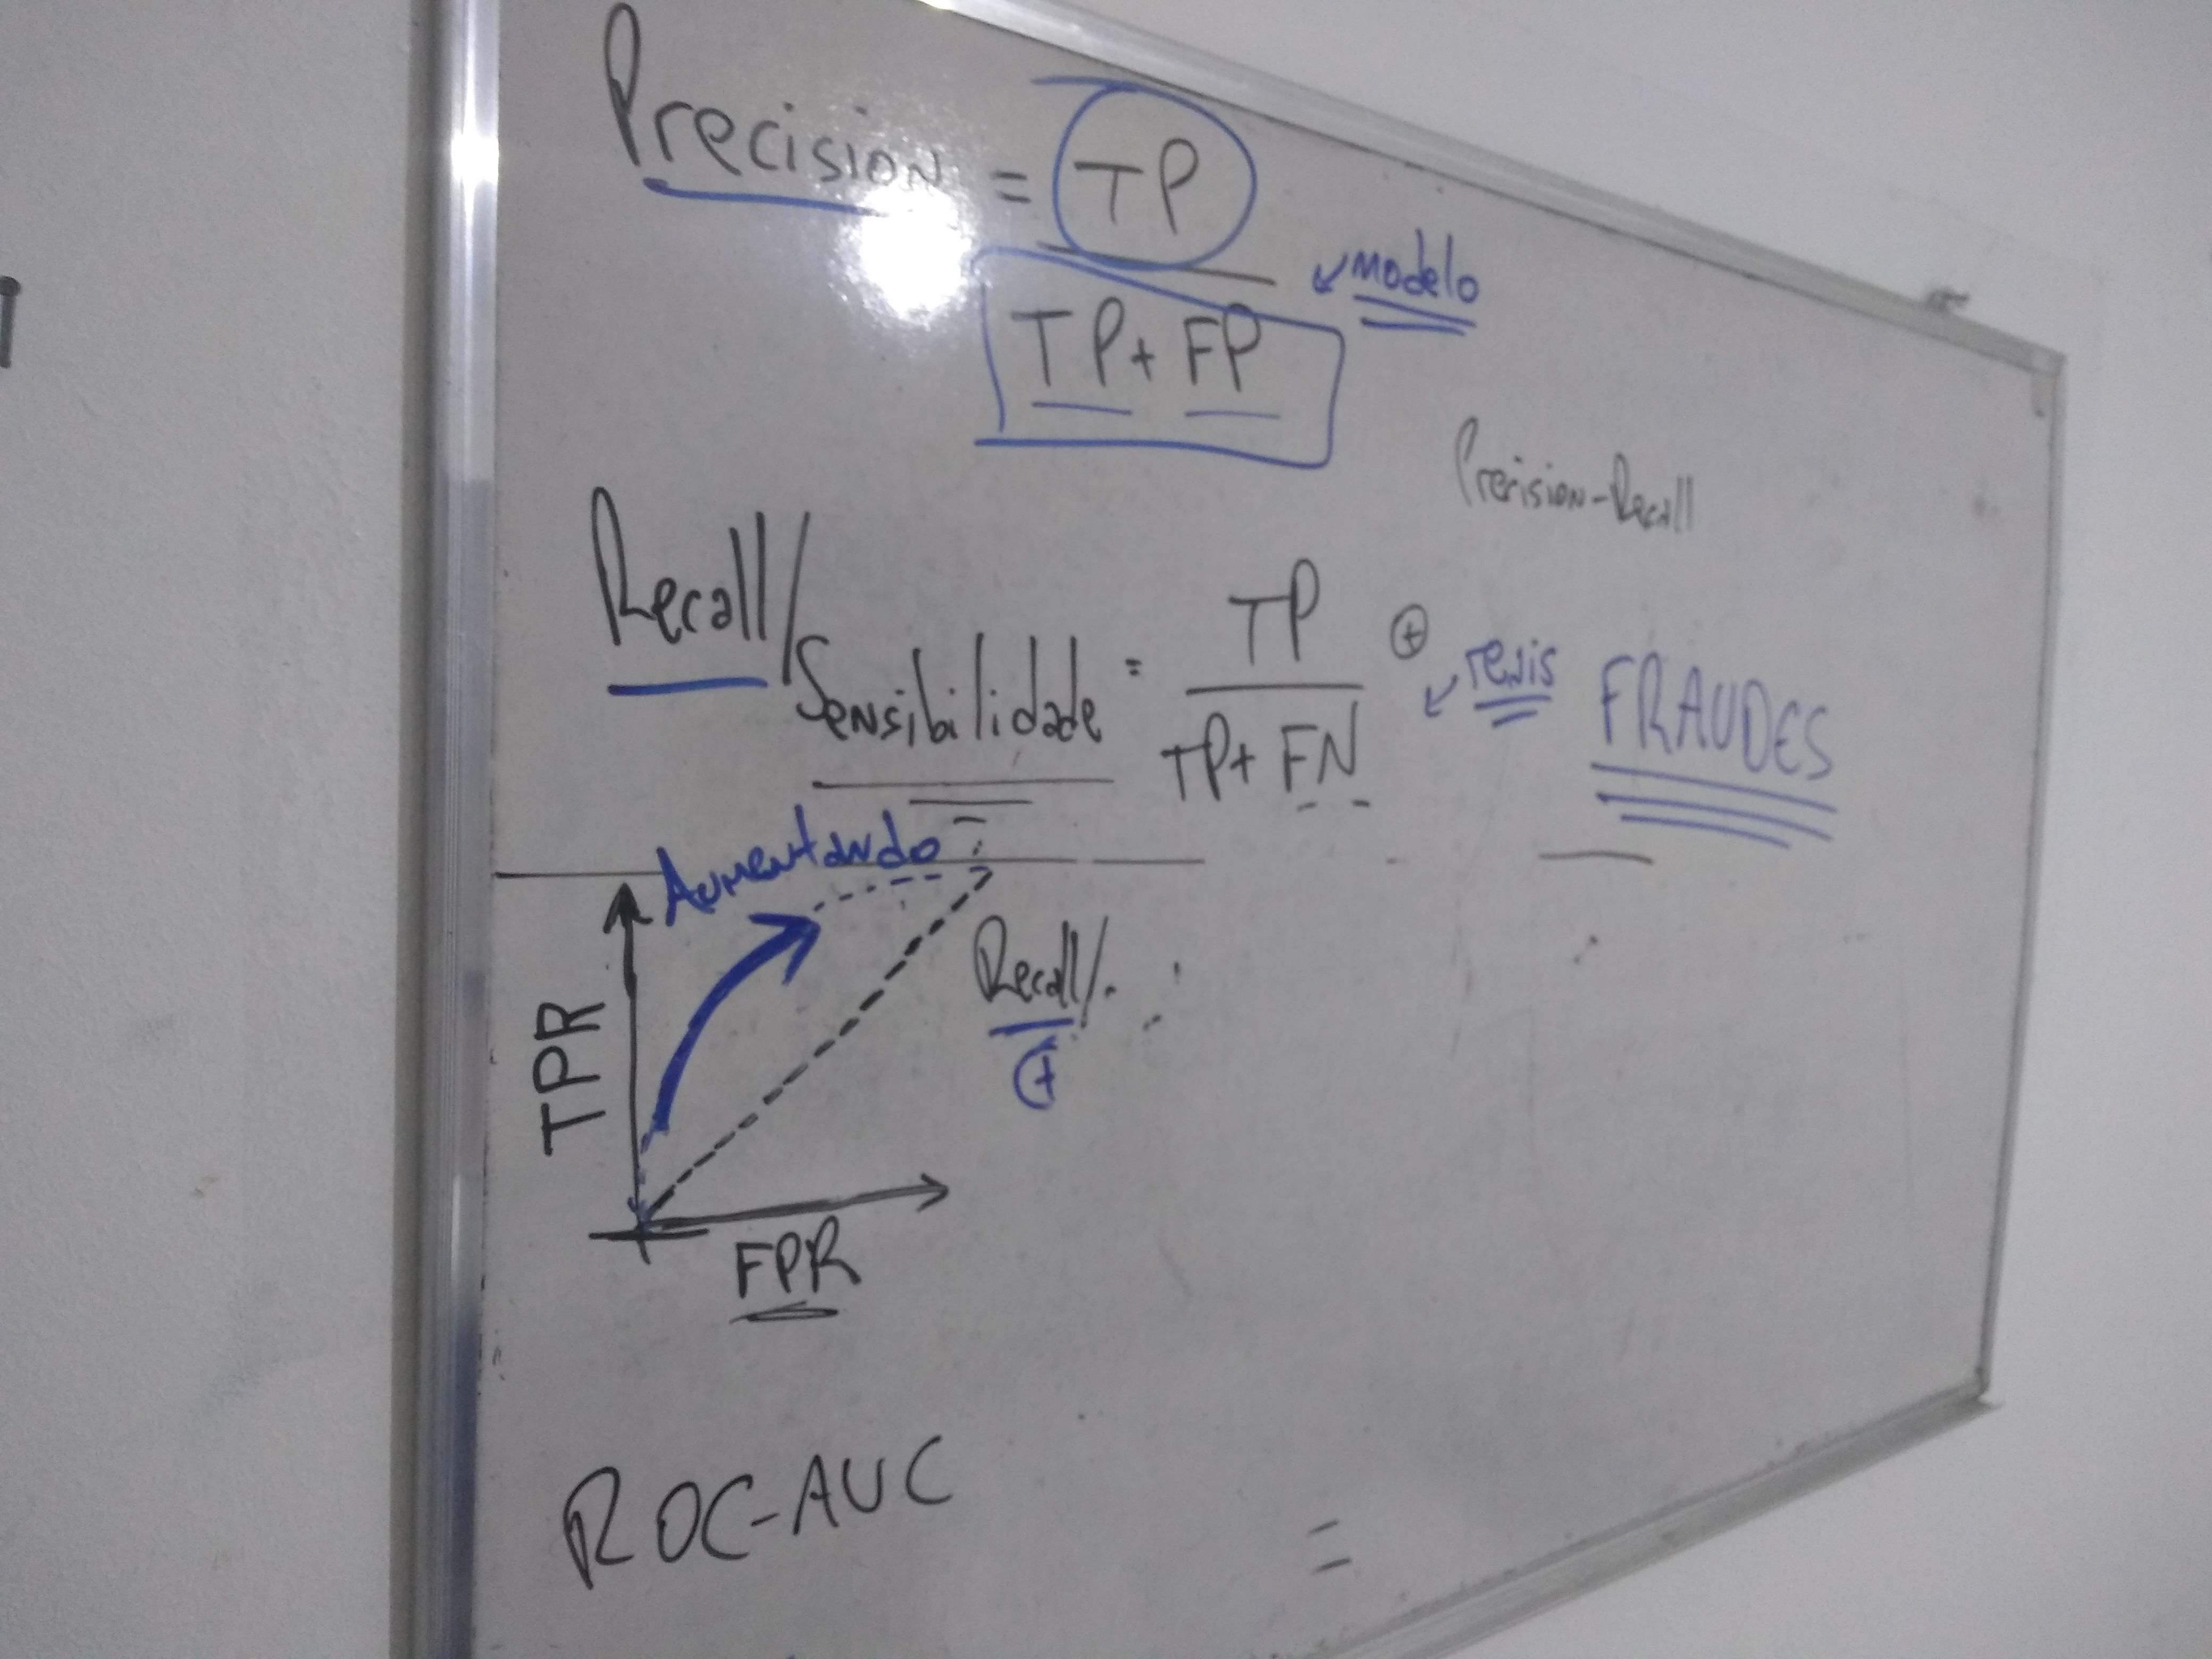 Precision = TP
TP + FP
modelo
Precision-Recall
Recall/
Sensibilidade = TP
TP + FN
+
reais
FRAUDES
Aumentando
TPR
FPR
Recall/
+
ROC-AUC
=